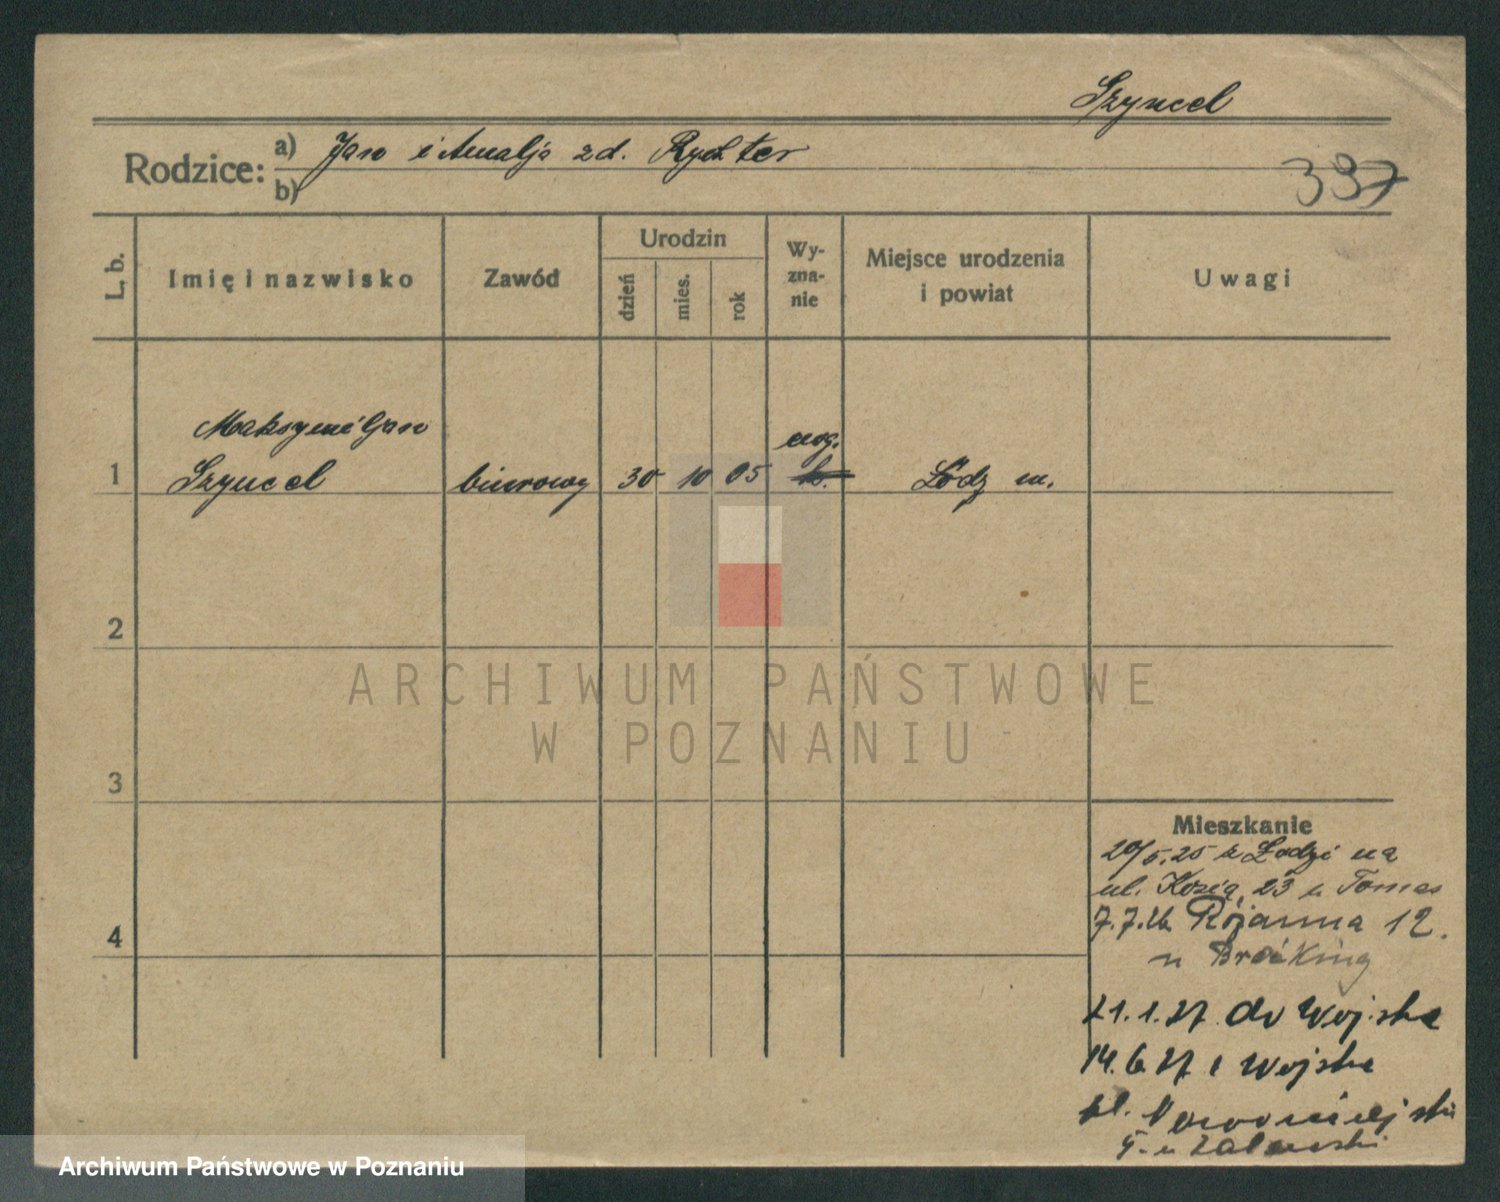 Szyncel
Rodzice:
a) Jan i Amalja zd. Rychter
b)
397
L. b.
Imię i nazwisko
Zawód
Urodzin
dzień
mies.
rok
Wy-
zna-
nie
Miejsce urodzenia
i powiat
Uwagi
Maksymiljan
1 Szyncel biurowy 30 10 05 ewg. k. Łódź m.
2
3
4
Mieszkanie
20/5.25 z Łodzi na
ul. Kozią 23 u Tomas
7.7.26 Różanna 12.
u Bröcking
21.1.27 do Wojska
14.6.27 z Wojska
pl. Nowomiejski
5. u Zalewski
ARCHIWUM PAŃSTWOWE
W POZNANIU
Archiwum Państwowe w Poznaniu